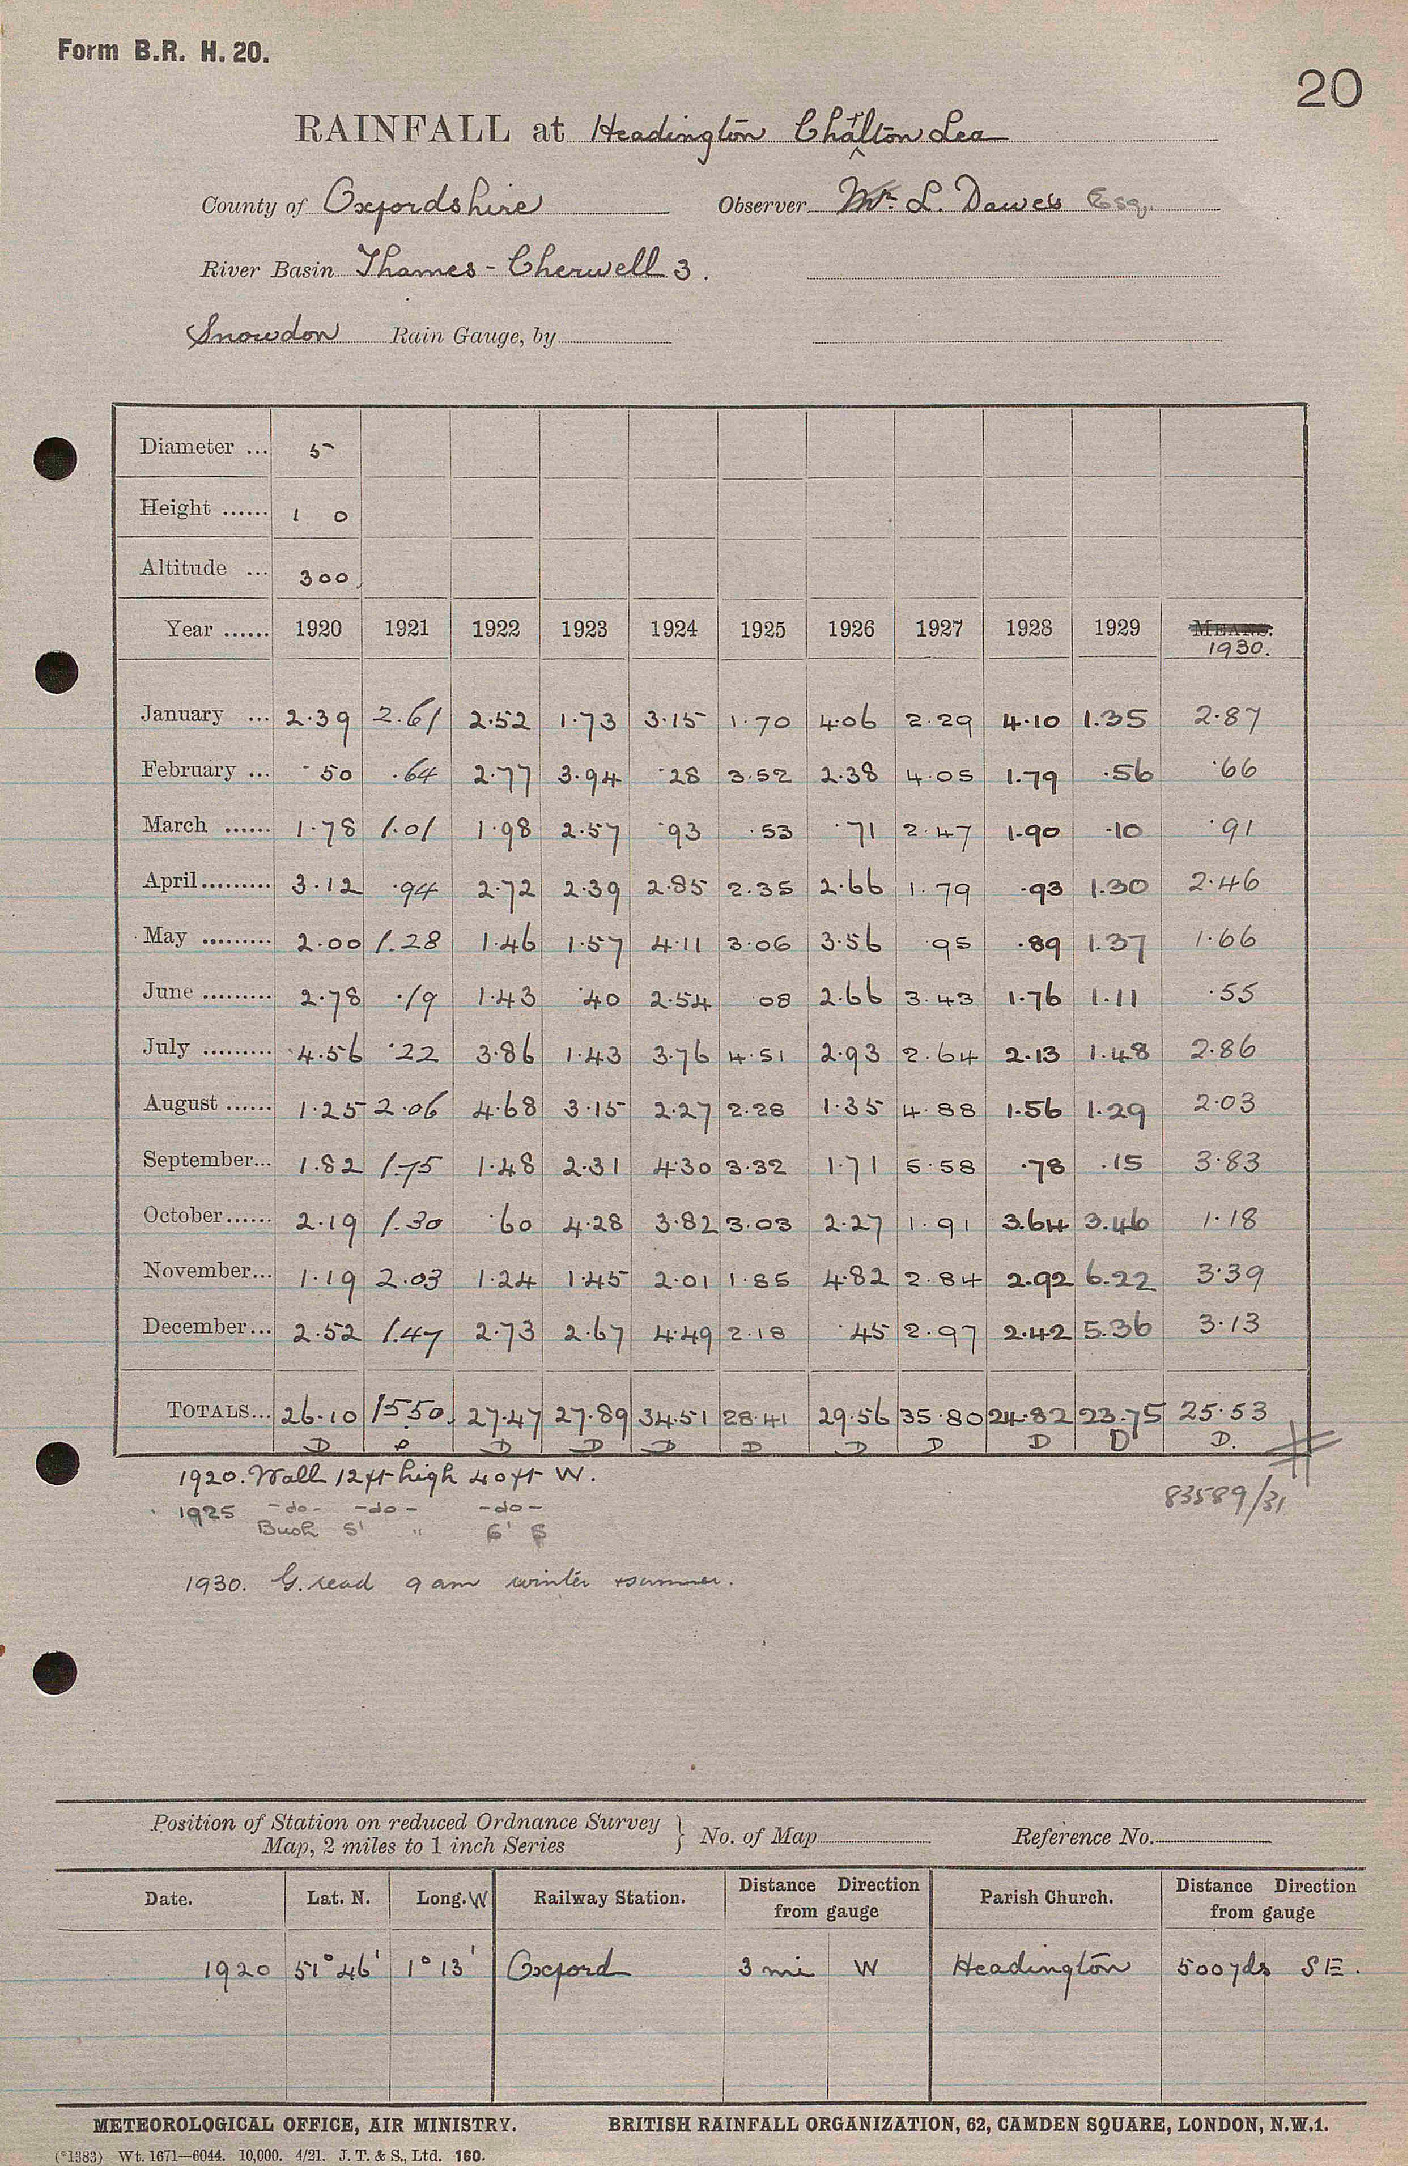 Form B.R. H. 20.
20
RAINFALL at Headington Chalton Lea
County of Oxfordshire Observer Mr. L. Dawes Esq.
River Basin Thames - Cherwell 3.
Snowdon Rain Gauge, by
Diameter ... 5
Height ...... 1 0
Altitude ... 300
Year ...... 1920 1921 1922 1923 1924 1925 1926 1927 1928 1929 MEANS.
1930.
January ... 2.39 2.61 2.52 1.73 3.15 1.70 4.06 2.29 4.10 1.35 2.87
February ... .50 .64 2.77 3.94 .28 3.52 2.38 4.05 1.79 .56 .66
March ...... 1.78 1.01 1.98 2.57 .93 .53 .71 2.47 1.90 .10 .91
April......... 3.12 .94 2.72 2.39 2.85 2.35 2.66 1.79 .93 1.30 2.46
May ......... 2.00 1.28 1.46 1.57 4.11 3.06 3.56 .95 .89 1.37 1.66
June ......... 2.78 .19 1.43 .40 2.54 08 2.66 3.43 1.76 1.11 .55
July ......... 4.56 .22 3.86 1.43 3.76 4.51 2.93 2.64 2.13 1.48 2.86
August ...... 1.25 2.06 4.68 3.15 2.27 2.28 1.35 4.88 1.56 1.29 2.03
September... 1.82 1.75 1.48 2.31 4.30 3.32 1.71 5.58 .78 .15 3.83
October...... 2.19 1.30 .60 4.28 3.82 3.03 2.27 1.91 3.64 3.46 1.18
November... 1.19 2.03 1.24 1.45 2.01 1.85 4.82 2.84 2.92 6.22 3.39
December... 2.52 1.47 2.73 2.67 4.49 2.18 .45 2.97 2.42 5.36 3.13
TOTALS... 26.10 15.50. 27.47 27.89 34.51 28.41 29.56 35.80 24.82 23.75 25.53
D D D D D D D D D D D.
1920. Wall 12ft high 40ft W.
83589/31
1925 -do- -do- -do-
Bush 5' " 6' S
1930. G. read 9 am winter + summer.
Position of Station on reduced Ordnance Survey
Map, 2 miles to 1 inch Series } No. of Map Reference No.
Date. Lat. N. Long. W Railway Station. Distance Direction from gauge Parish Church. Distance Direction from gauge
1920 51° 46' 1° 13' Oxford 3 mi W Headington 500 yds SE.
METEOROLOGICAL OFFICE, AIR MINISTRY. BRITISH RAINFALL ORGANIZATION, 62, CAMDEN SQUARE, LONDON, N.W.1.
(*1383) Wt. 1671—6044. 10,000. 4/21. J. T. & S., Ltd. 160.